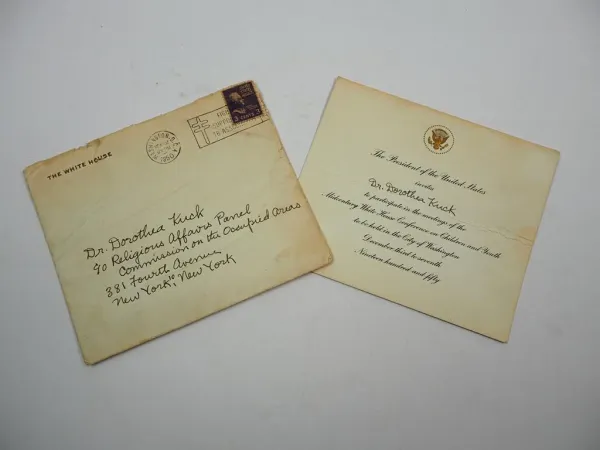 THE WHITE HOUSE
1950
3 CENTS 3
Dr. Dorothea Kuck
℅ Religious Affairs Panel
Commission on the Occupied Areas
381 Fourth Avenue
New York, 16 New York
The President of the United States
invites
Dr. Dorothea Kuck
to participate in the meetings of the
Midcentury White House Conference on Children and Youth
to be held in the City of Washington
December third to seventh
Nineteen hundred and fifty